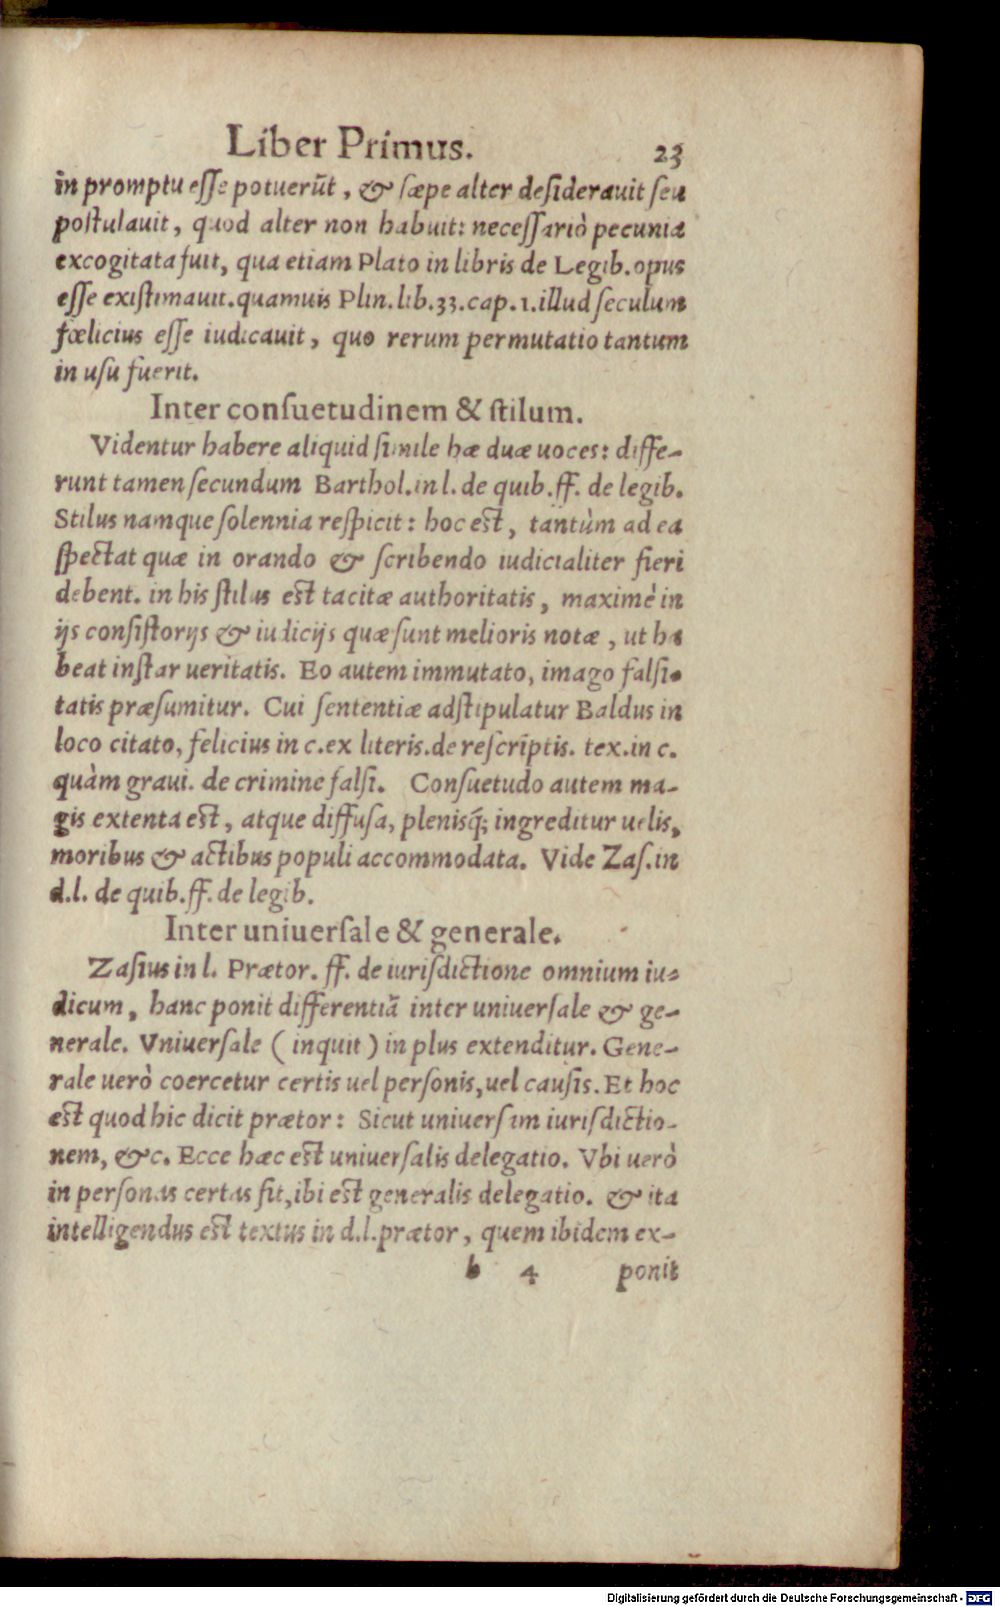 Liber Primus. 23
in promptu eſſe potuerūt, & ſæpe alter deſiderauit ſeu
poſtulauit, quod alter non habuit: neceſſariò pecunia
excogitata fuit, qua etiam Plato in libris de Legib. opus
eſſe exiſtimauit. quamuis Plin. lib. 33. cap. 1. illud ſeculum
fœlicius eſſe iudicauit, quo rerum permutatio tantum
in uſu fuerit.
Inter conſuetudinem & ſtilum.
Videntur habere aliquid ſimile hæ duæ uoces: diffe-
runt tamen ſecundum Barthol. in l. de quib. ff. de legib.
Stilus namque ſolennia reſpicit: hoc eſt, tantùm ad ea
ſpectat quæ in orando & ſcribendo iudicialiter fieri
debent. in his ſtilus eſt tacitæ authoritatis, maximè in
ijs conſiſtorijs & iudicijs quæ ſunt melioris notæ, ut ha
beat inſtar ueritatis. Eo autem immutato, imago falſi-
tatis præſumitur. Cui ſententiæ adſtipulatur Baldus in
loco citato, felicius in c. ex literis. de reſcriptis. tex. in c.
quàm graui. de crimine falſi. Conſuetudo autem ma-
gis extenta eſt, atque diffuſa, pleniſq́; ingreditur uelis,
moribus & actibus populi accommodata. Vide Zaſ. in
d.l. de quib. ff. de legib.
Inter uniuerſale & generale.
Zaſius in l. Prætor. ff. de iuriſdictione omnium iu-
dicum, hanc ponit differentiā inter uniuerſale & ge-
nerale. Vniuerſale (inquit) in plus extenditur. Gene-
rale uerò coercetur certis uel perſonis, uel cauſis. Et hoc
eſt quod hic dicit prætor: Sicut uniuerſam iuriſdictio-
nem, &c. Ecce hæc eſt uniuerſalis delegatio. Vbi uerò
in perſonas certas fit, ibi eſt generalis delegatio. & ita
intelligendus eſt textus in d.l. prætor, quem ibidem ex-
b 4 ponit
Digitalisierung gefördert durch die Deutsche Forschungsgemeinschaft - DFG